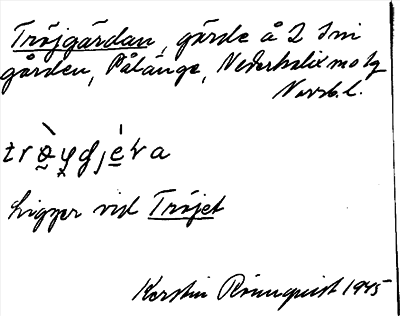 Tröjgärdan, gärde å 2 Ini
gården, Pålänge, Nederkalix mo sg
Norrb. l.
trø̀ygjéṛa
Ligger vid Tröjet
Kerstin Rönnquist 1945